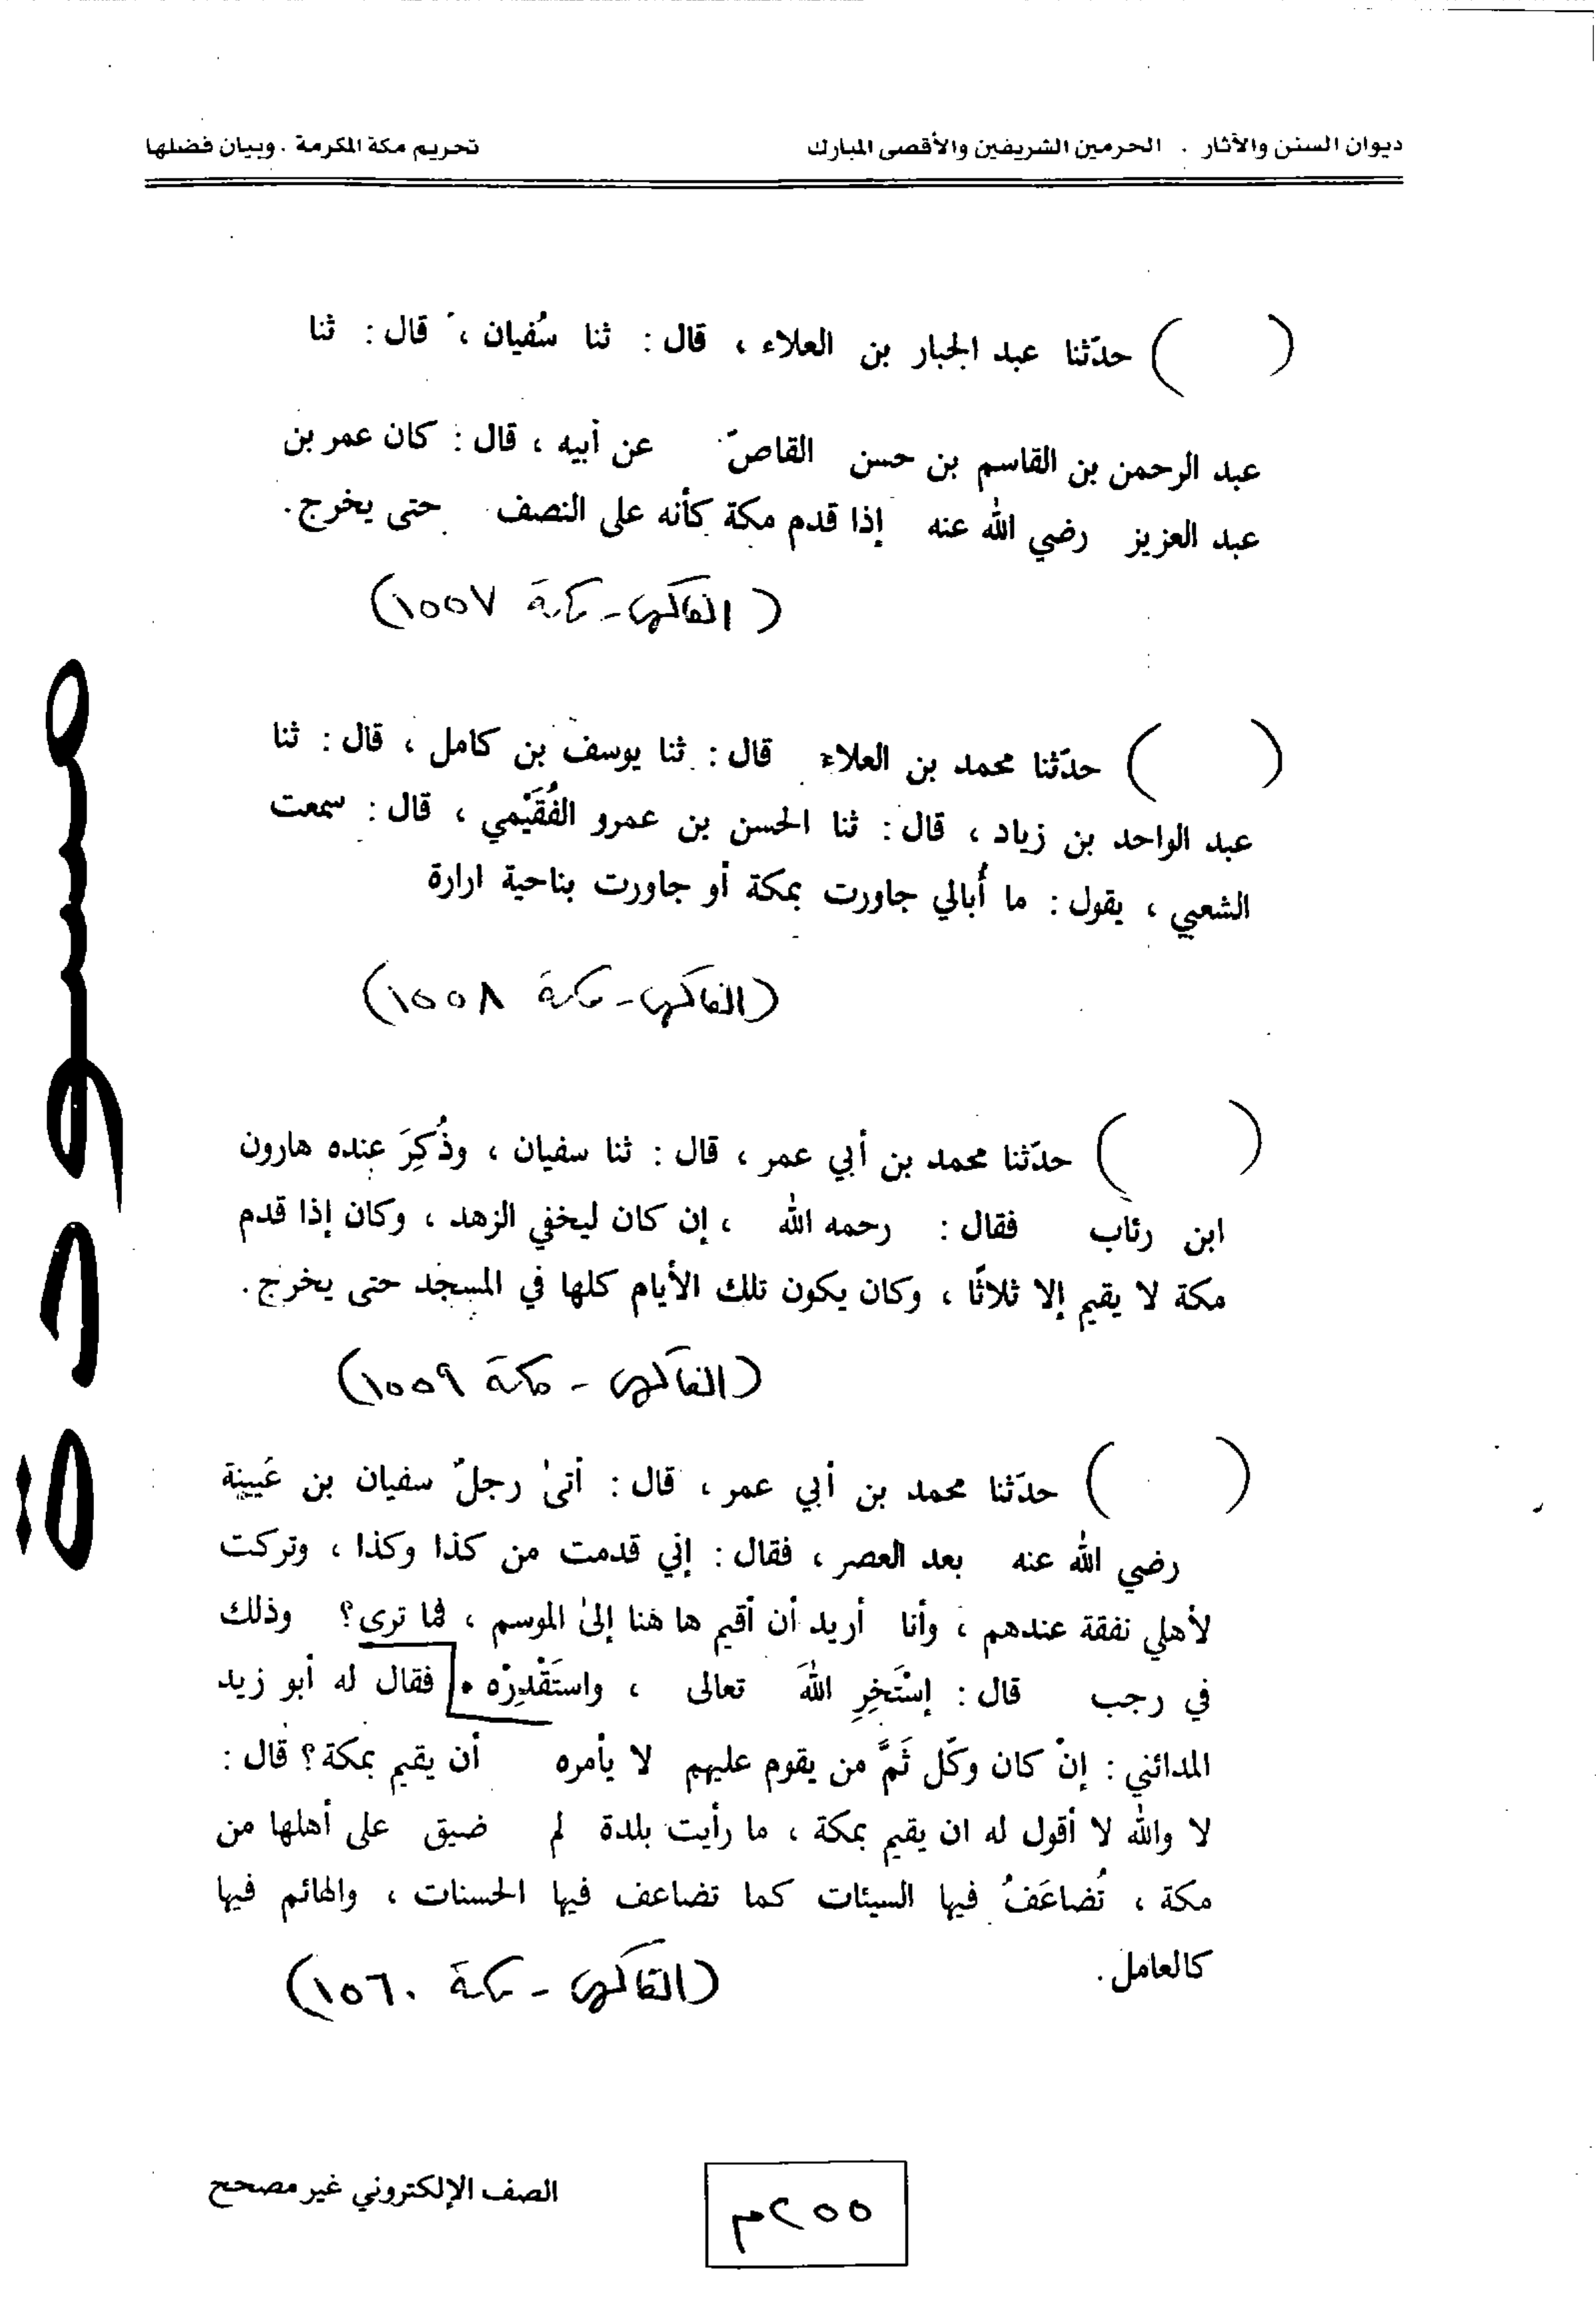 ديوان السنن والآثار . الحرمين الشريفين والأقصى المبارك
تحريم مكة المكرمة . وبيان فضلها
( ) حدّثنا عبد الجبار بن العلاء ، قال : ثنا سُفيان ، قال : ثنا
عبد الرحمن بن القاسم بن حسن القاصّ عن أبيه ، قال : كان عمر بن
عبد العزيز رضي الله عنه إذا قدم مكة كأنه على النصف حتى يخرج .
( الفاكهي - مكة ١٥٥٧ )
( ) حدّثنا محمد بن العلاء قال : ثنا يوسف بن كامل ، قال : ثنا
عبد الواحد بن زياد ، قال : ثنا الحسن بن عمرو الفُقَيْمي ، قال : سمعت
الشعبي ، يقول : ما أُبالي جاورت بمكة أو جاورت بناحية ارارة
( الفاكهي - مكة ١٥٥٨ )
( ) حدّثنا محمد بن أبي عمر ، قال : ثنا سفيان ، وذُكِرَ عنده هارون
ابن رئاب فقال : رحمه الله ، إن كان ليخفي الزهد ، وكان إذا قدم
مكة لا يقيم إلا ثلاثًا ، وكان يكون تلك الأيام كلها في المسجد حتى يخرج .
( الفاكهي - مكة ١٥٥٩ )
( ) حدّثنا محمد بن أبي عمر ، قال : أتىٰ رجلٌ سفيان بن عُيينة
رضي الله عنه بعد العصر ، فقال : إني قدمت من كذا وكذا ، وتركت
لأهلي نفقة عندهم ، وأنا أريد أن أقيم ها هنا إلىٰ الموسم ، فما ترى؟ وذلك
في رجب قال : إسْتَخِرِ اللهَ تعالى ، واستَقْدِرْه . فقال له أبو زيد
المدائني : إنْ كان وكّل ثَمَّ من يقوم عليهم لا يأمره أن يقيم بمكة؟ قال :
لا والله لا أقول له ان يقيم بمكة ، ما رأيت بلدة لم ضيق على أهلها من
مكة ، تُضاعَفُ فيها السيئات كما تضاعف فيها الحسنات ، والهائم فيها
كالعامل .
( الفاكهي - مكة ١٥٦٠ )
مسودة
٢٥٥م
الصف الإلكتروني غير مصحح